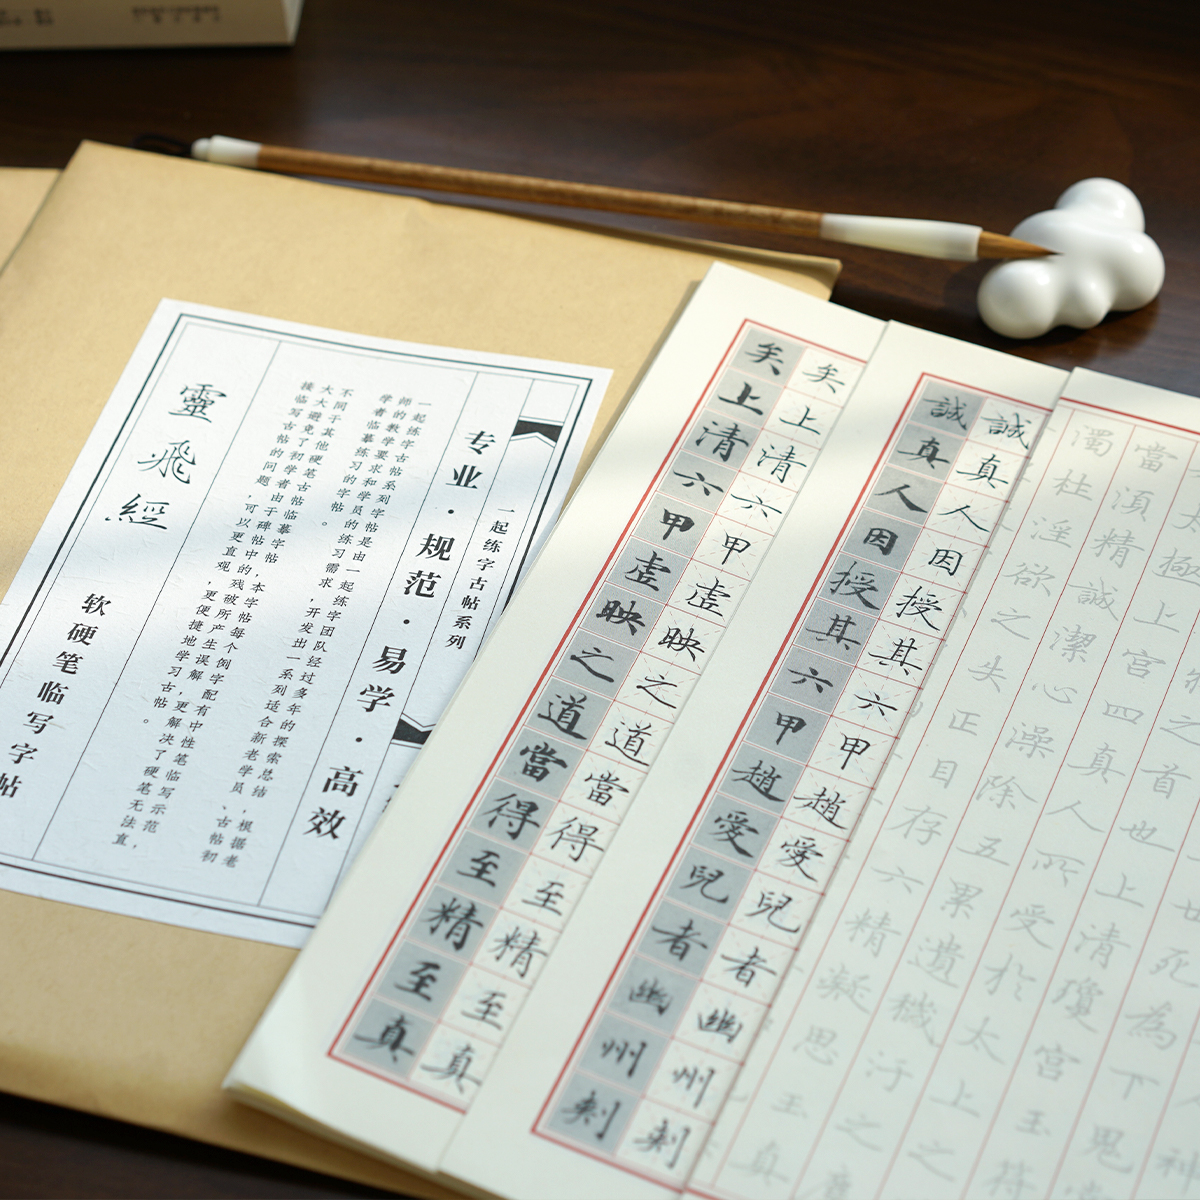 一起练字古帖系列
专业·规范·易学·高效
一起练字古帖系列字帖是由一起练字团队经过多年的探索总结,根据老
师的教学要求和学员的练习需求,开发出一系列适合新老学员、古帖初
学者临摹练习的字帖。
不同于其他硬笔古帖临摹字帖,本字帖每个例字配有中性笔临写示范,
大大避免了初学者由于碑帖中的残破所产生误解,更解决了硬笔无法直
接临写古帖的问题,可以更直观,更便捷地学习古帖。
靈飛經
软硬笔临写字帖
矣上清六甲虚映之道當得至精至真
矣上清六甲虚映之道當得至精至真
誠真人因授其六甲趙愛兒者幽州刺
誠真人因授其六甲趙愛兒者幽州刺
死為下鬼
之首也上清瓊宮玉符
太極上宮四真人所受於太上之
當須精誠潔心澡除五累遺穢汙之
濁杜淫欲之失正目存六精凝思玉真